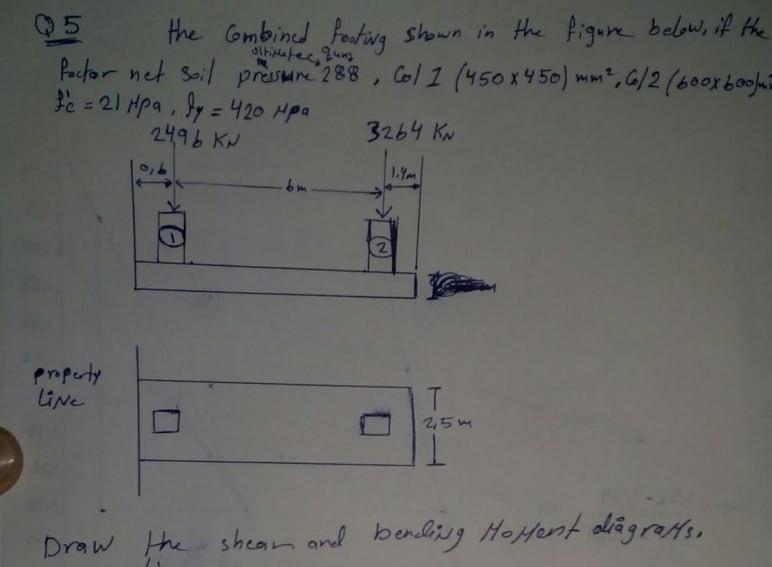 Q5 the Combined footing shown in the figure below, if the
ultimate, qunet
factor net soil pressure 288, Col 1 (450x450) mm², Col2 (600x600)m
f'c = 21 MPa, fy = 420 MPa
2496 KN 3264 KN
0,6 6m 1.4m
1 2
property
Line
2,5m
Draw the shear and bending Moment diagrams.